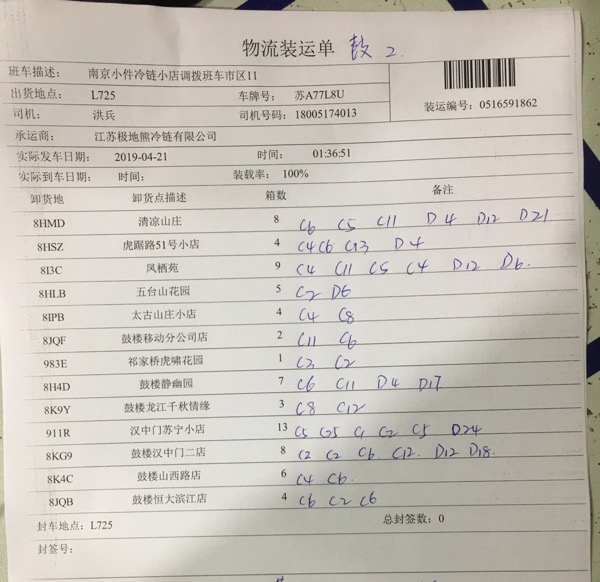 物流装运单 鼓2
班车描述: 南京小件冷链小店调拨班车市区11
出货地点: L725 车牌号: 苏A77L8U
装运编号: 0516591862
司机: 洪兵 司机号码: 18005174013
承运商: 江苏极地熊冷链有限公司
实际发车日期: 2019-04-21 时间: 01:36:51
实际到车日期: 时间: 装载率: 100%
卸货地 卸货点描述 箱数 备注
8HMD 清凉山庄 8 C6 C5 C11 D4 D12 D21
8HSZ 虎踞路51号小店 4 C4 C6 C13 D4
8I3C 凤栖苑 9 C4 C11 C5 C4 D12 D6
8HLB 五台山花园 5 C2 D6
8IPB 太古山庄小店 4 C4 C8
8JQF 鼓楼移动分公司店 2 C11 C6
983E 祁家桥虎啸花园 1 C3 C2
8H4D 鼓楼静幽园 7 C6 C11 D4 D17
8K9Y 鼓楼龙江千秋情缘 3 C8 C12
911R 汉中门苏宁小店 13 C5 C25 C1 C2 C5 D24
8KG9 鼓楼汉中门二店 8 C2 C2 C6 C12 D12 D18
8K4C 鼓楼山西路店 6 C4 C6
8JQB 鼓楼恒大滨江店 4 C6 C2 C6
封车地点: L725 总封签数: 0
封签号: